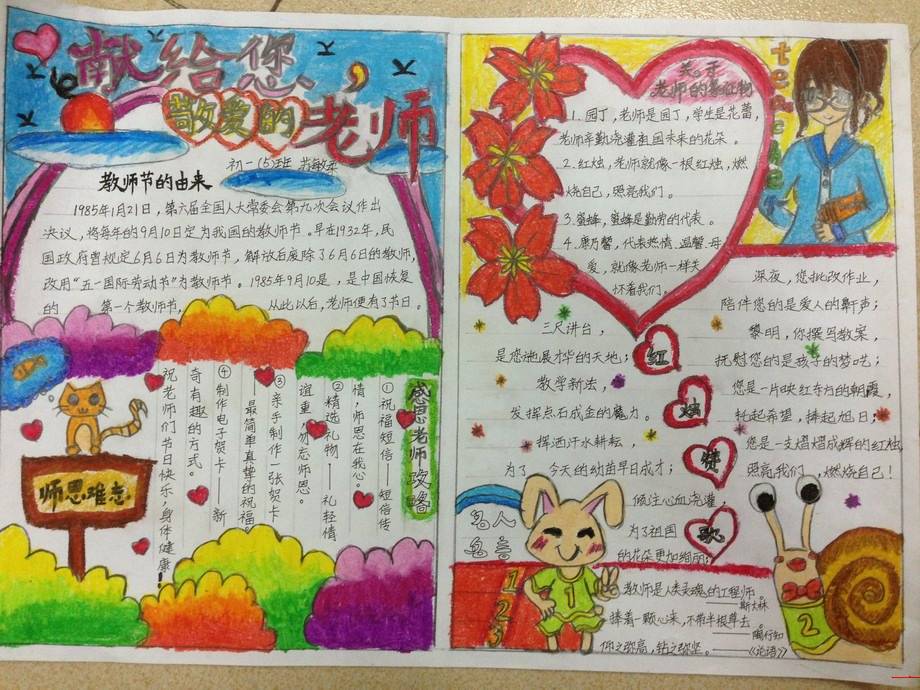 献给您、
敬爱的老师
初一(5)班
教师节的由来
1985年1月21日，第六届全国人大常委会第九次会议作出
决议，将每年的9月10日定为我国的教师节。早在1932年，民
国政府曾规定6月6日为教师节，解放后废除了6月6日的教师，
改用“五一国际劳动节”为教师节。1985年9月10是，是中国恢复
的 第一个教师节， 从此以后，老师便有了节日。
感恩老师攻略
①祝福短信——短信传
情，师恩在我心。
②精选礼物——礼轻情
谊重，勿忘师恩。
③亲手制作一张贺卡
——最简单真挚的祝福
④制作电子贺卡——新
奇有趣的方式。
祝老师们节日快乐、身体健康！
师恩难忘
关于
老师的象征物
1.园丁，老师是园丁，学生是花蕾，
老师辛勤浇灌祖国未来的花朵。
2.红烛，老师就像一根红烛，燃
烧自己，照亮我们。
3.蜜蜂，蜜蜂是勤劳的代表。
4.康乃馨，代表热情、温馨、母
爱，就像老师一样关
怀着我们。
teacher
红烛赞歌
三尺讲台，
是您施展才华的天地；
教学新法，
发挥点石成金的魔力。
挥洒汗水耕耘，
为了 今天的幼苗早日成才；
倾注心血浇灌，
为了祖国
的花朵更加绚丽；
深夜，您批改作业，
陪伴您的是爱人的鼾声；
黎明，你撰写教案，
抚慰您的是孩子的梦呓；
您是一片映红东方的朝霞，
托起希望，捧起旭日；
您是一支熠熠成辉的红烛，
照亮我们，燃烧自己！
名人
名言
1
2
3
教师是人类灵魂的工程师。
——斯大林
捧着一颗心来，不带半根草去。
——陶行知
仰之弥高，钻之弥坚。——《论语》
1
2